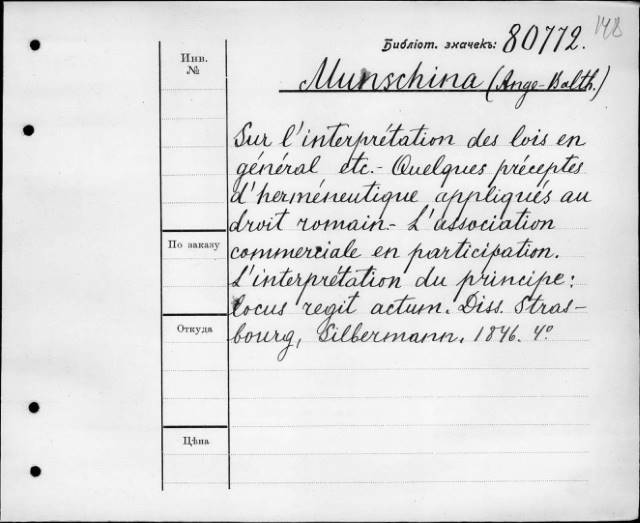 148
Библіот. значекъ: 80772.
Инв.
№
Munschina (Ange-Balth.)
Sur l'interprétation des lois en
général etc.- Quelques préceptes
d'herméneutique appliqués au
droit romain.- L'association
По заказу
commerciale en participation.
L'interprétation du principe:
locus regit actum. Diss. Stras-
Откуда
bourg, Silbermann. 1846. 4°.
Цѣна